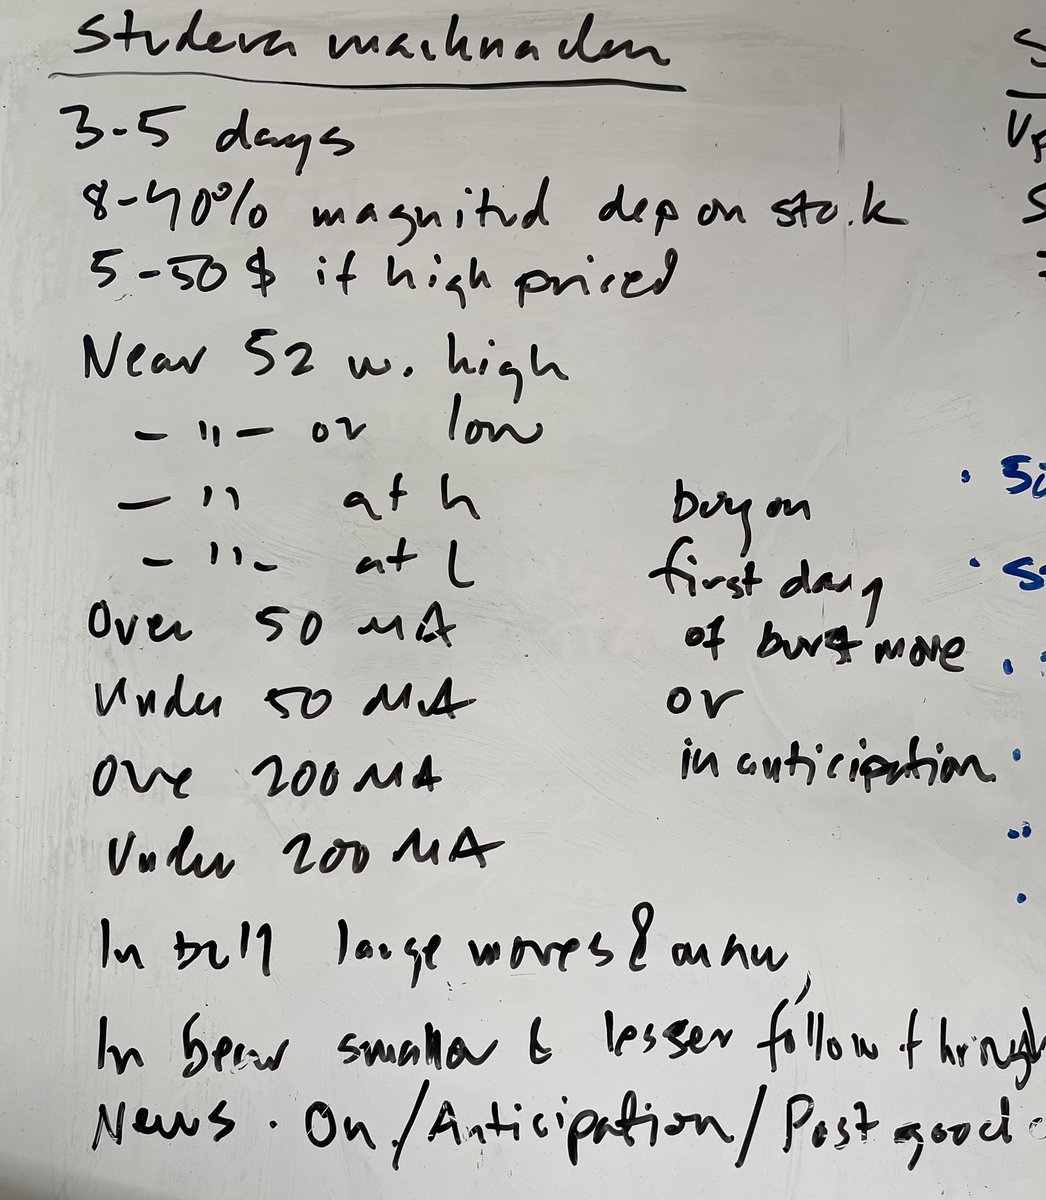 Studera marknaden
3-5 days
8-40% magnitud dep on stock
5-50$ if high priced
Near 52 w. high
-"- or low
-" at h
-"- at l
Over 50 MA
Under 50 MA
Ove 200 MA
Under 200 MA
In bull large moves &
In bear smaller & lesser follow through
News. On/Anticipation/Post good
buy on
first day
of burst move
or
in anticipation